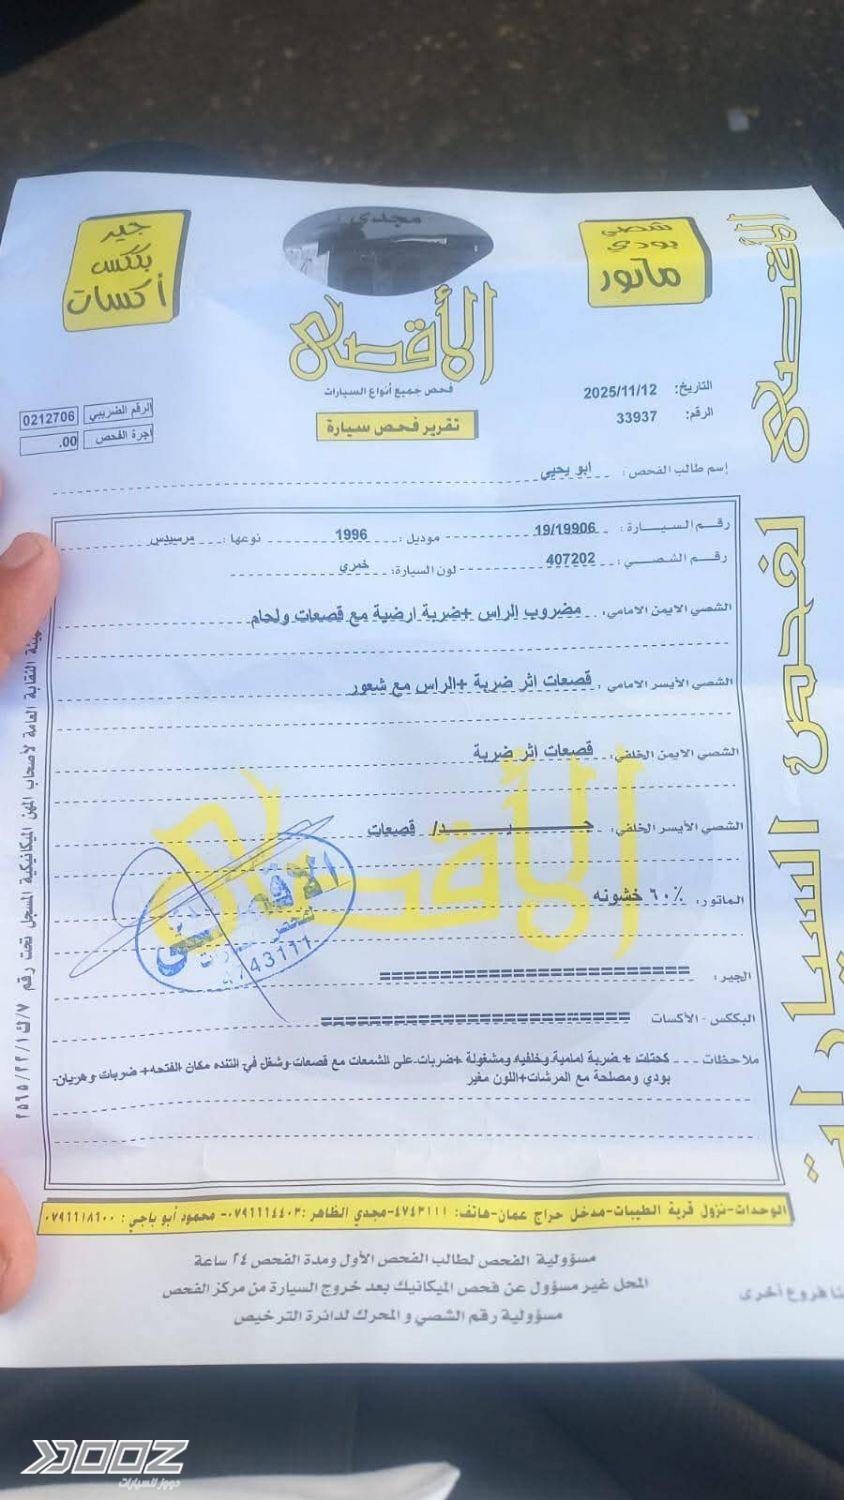 جير
بكس
أكسات
مجدي
شصي
بودي
ماتور
الأقصى
فحص جميع أنواع السيارات
تقرير فحص سيارة
التاريخ: 2025/11/12
الرقم: 33937
الرقم الضريبي 0212706
اجرة الفحص .00
إسم طالب الفحص : ابو يحيى
رقم السيارة : 19/19906 موديل : 1996 نوعها : مرسيدس
رقم الشصي : 407202 لون السيارة: خمري
الشصي الايمن الامامي: مضروب الراس +ضربة ارضية مع قصعات ولحام
الشصي الأيسر الامامي : قصعات اثر ضربة +الراس مع شعور
الشصي الايمن الخلفي: قصعات اثر ضربة
الشصي الأيسر الخلفي: جيد/ قصعات
الماتور: ٦٠٪ خشونه
الجير: =========================
البككس - الأكسات =========================
ملاحظات كحتلت + ضربة امامية وخلفيه ومشغولة +ضربات على الشمعات مع قصعات وشغل في التنده مكان الفتحه+ ضربات وهريان
بودي ومصلحة مع المرشات+اللون مغير
الأقصى
لفحص سيارات
4743111
الأقصى لفحص السيارات
الوحدات-نزول قرية الطيبات-مدخل حراج عمان-هاتف: ٤٧٤٣١١١-مجدي الظاهر :٠٧٩٦٦٦٤٤٠٣- محمود أبو باجي : ٠٧٩٦٦١٨٦٠٠
مسؤولية الفحص لطالب الفحص الأول ومدة الفحص ٢٤ ساعة
المحل غير مسؤول عن فحص الميكانيك بعد خروج السيارة من مركز الفحص
مسؤولية رقم الشصي و المحرك لدائرة الترخيص
فروع أخرى
النقابة العامة لأصحاب المهن الميكانيكية المسجل تحت رقم
DOOZ
دووز للسيارات